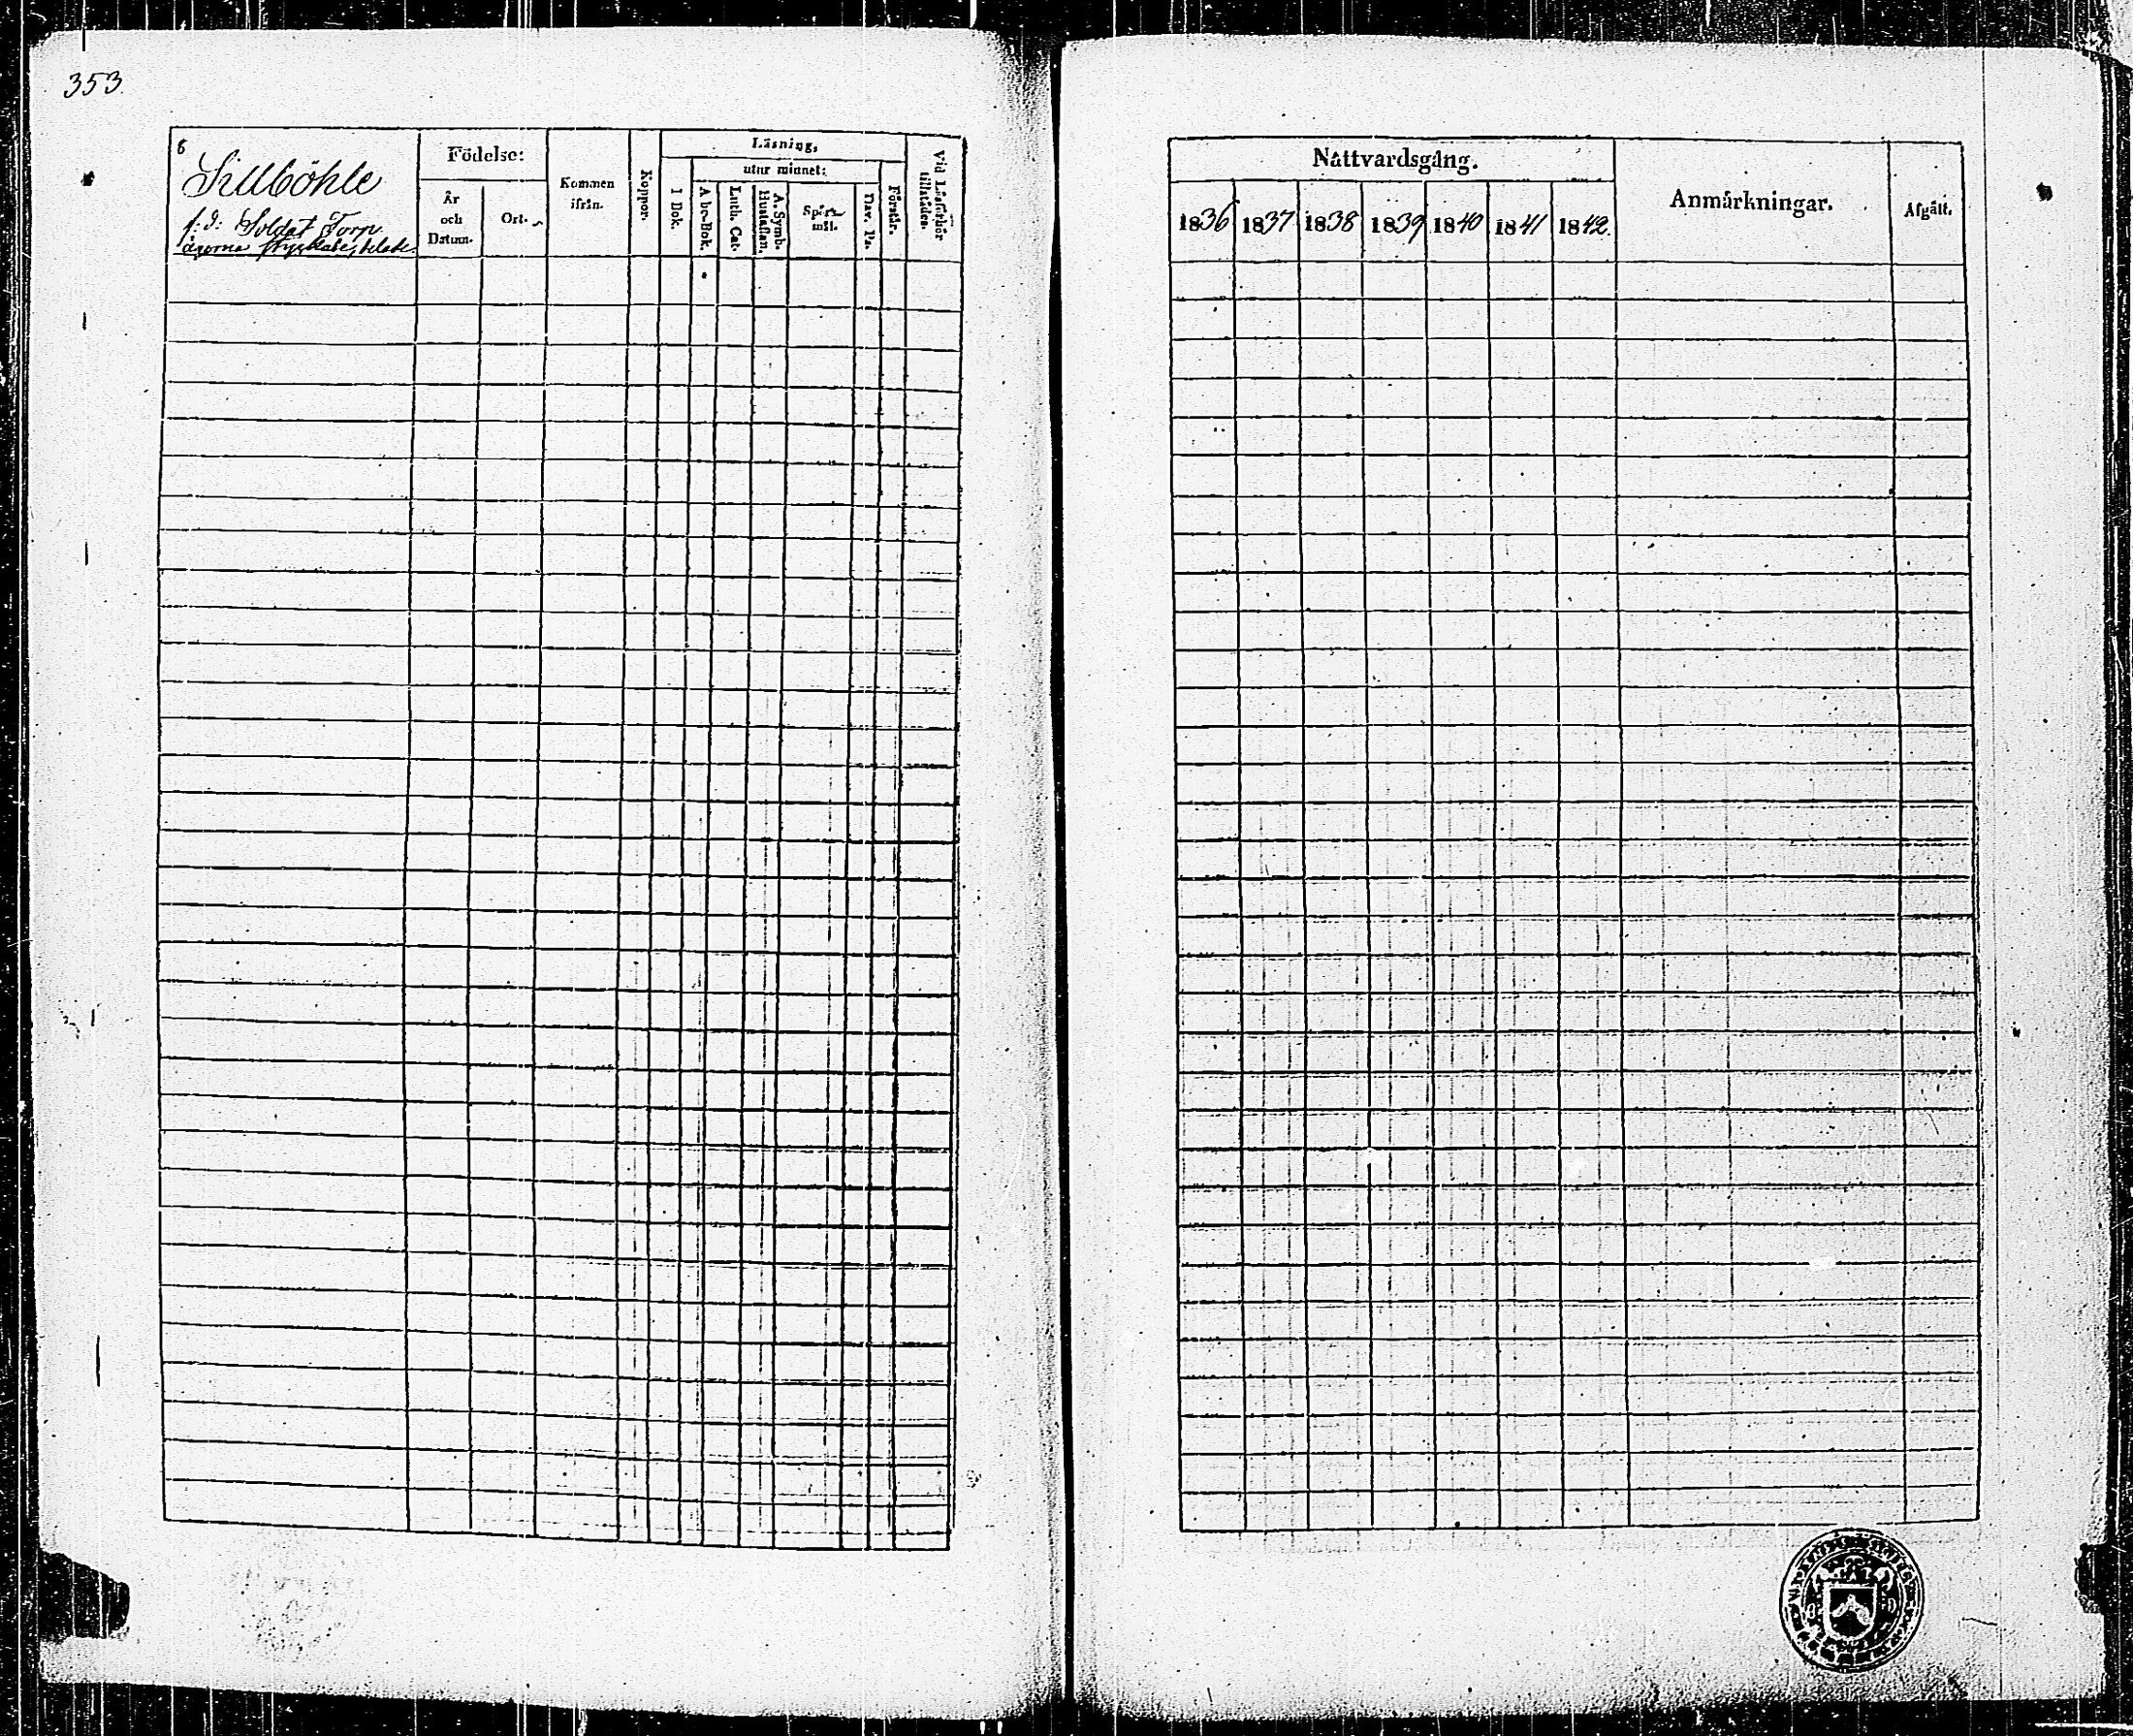 353
6
Sillböhle
f: d: Soldat Torp.
ägorna
Födelse:
År
och
Datum.
Ort.
Kommen
ifrån.
Koppor.
Läsning,
I Bok.
utur minnet:
Abc-Bok.
Luth. Cat.
A. Symb.
Hustaflan.
Spörs-
mål.
Dav. Ps.
Förstår.
Vid Läsförhör
tillstädes.
Nattvardsgång.
1836 1837 1838 1839 1840 1841 1842.
Anmärkningar.
Afgått.